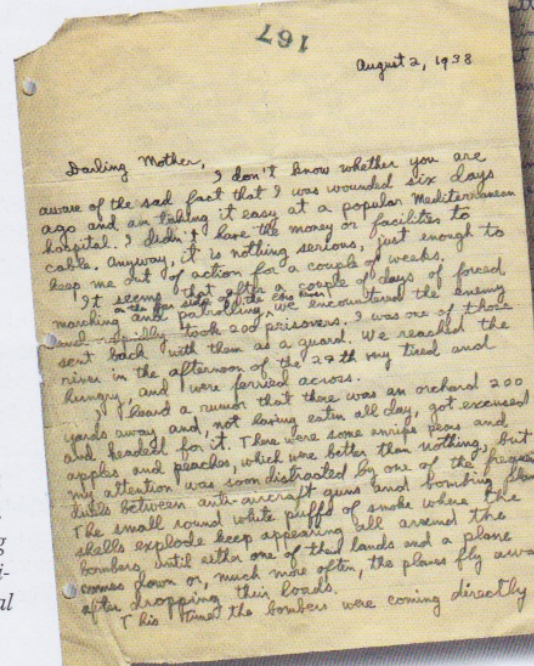 167
August 2, 1938
Darling Mother,
I don't know whether you are
aware of the sad fact that I was wounded six days
ago and am taking it easy at a popular Mediterranean
hospital. I didn't have the money or facilities to
cable. Anyway, it is nothing serious, just enough to
keep me out of action for a couple of weeks.
It seems that after a couple of days of forced
on the far side of the Ebro River
marching and patrolling, we encountered the enemy
and rapidly took 200 prisoners. I was one of those
sent back with them as a guard. We reached the
river in the afternoon of the 27th very tired and
hungry, and were ferried across.
I heard a rumor that there was an orchard 200
yards away and, not having eaten all day, got excused
and headed for it. There were some unripe pears and
apples and peaches, which were better than nothing, but
my attention was soon distracted by one of the frequen
duels between anti-aircraft guns and bombing plan
The small round white puffs of smoke where the
shells explode keep appearing all around the
bombers, until either one of them lands and a plane
comes down or, much more often, the planes fly awa
after dropping their loads.
This time the bombers were coming directly
g
i-
al